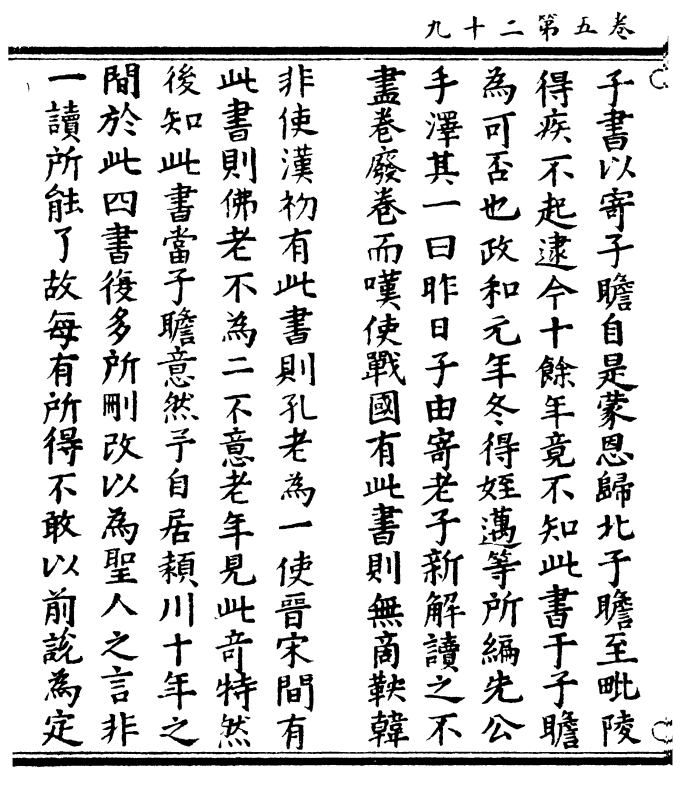 卷五第二十九
子書以寄子瞻自是蒙恩歸北子瞻至毗陵
得疾不起逮今十餘年竟不知此書于子瞻
為可否也政和元年冬得姪邁等所編先公
手澤其一曰昨日子由寄老子新解讀之不
盡卷廢卷而嘆使戰國有此書則無商鞅韓
非使漢初有此書則孔老為一使晉宋間有
此書則佛老不為二不意老年見此奇特然
後知此書當子瞻意然予自居潁川十年之
間於此四書復多所刪改以為聖人之言非
一讀所能了故每有所得不敢以前說為定